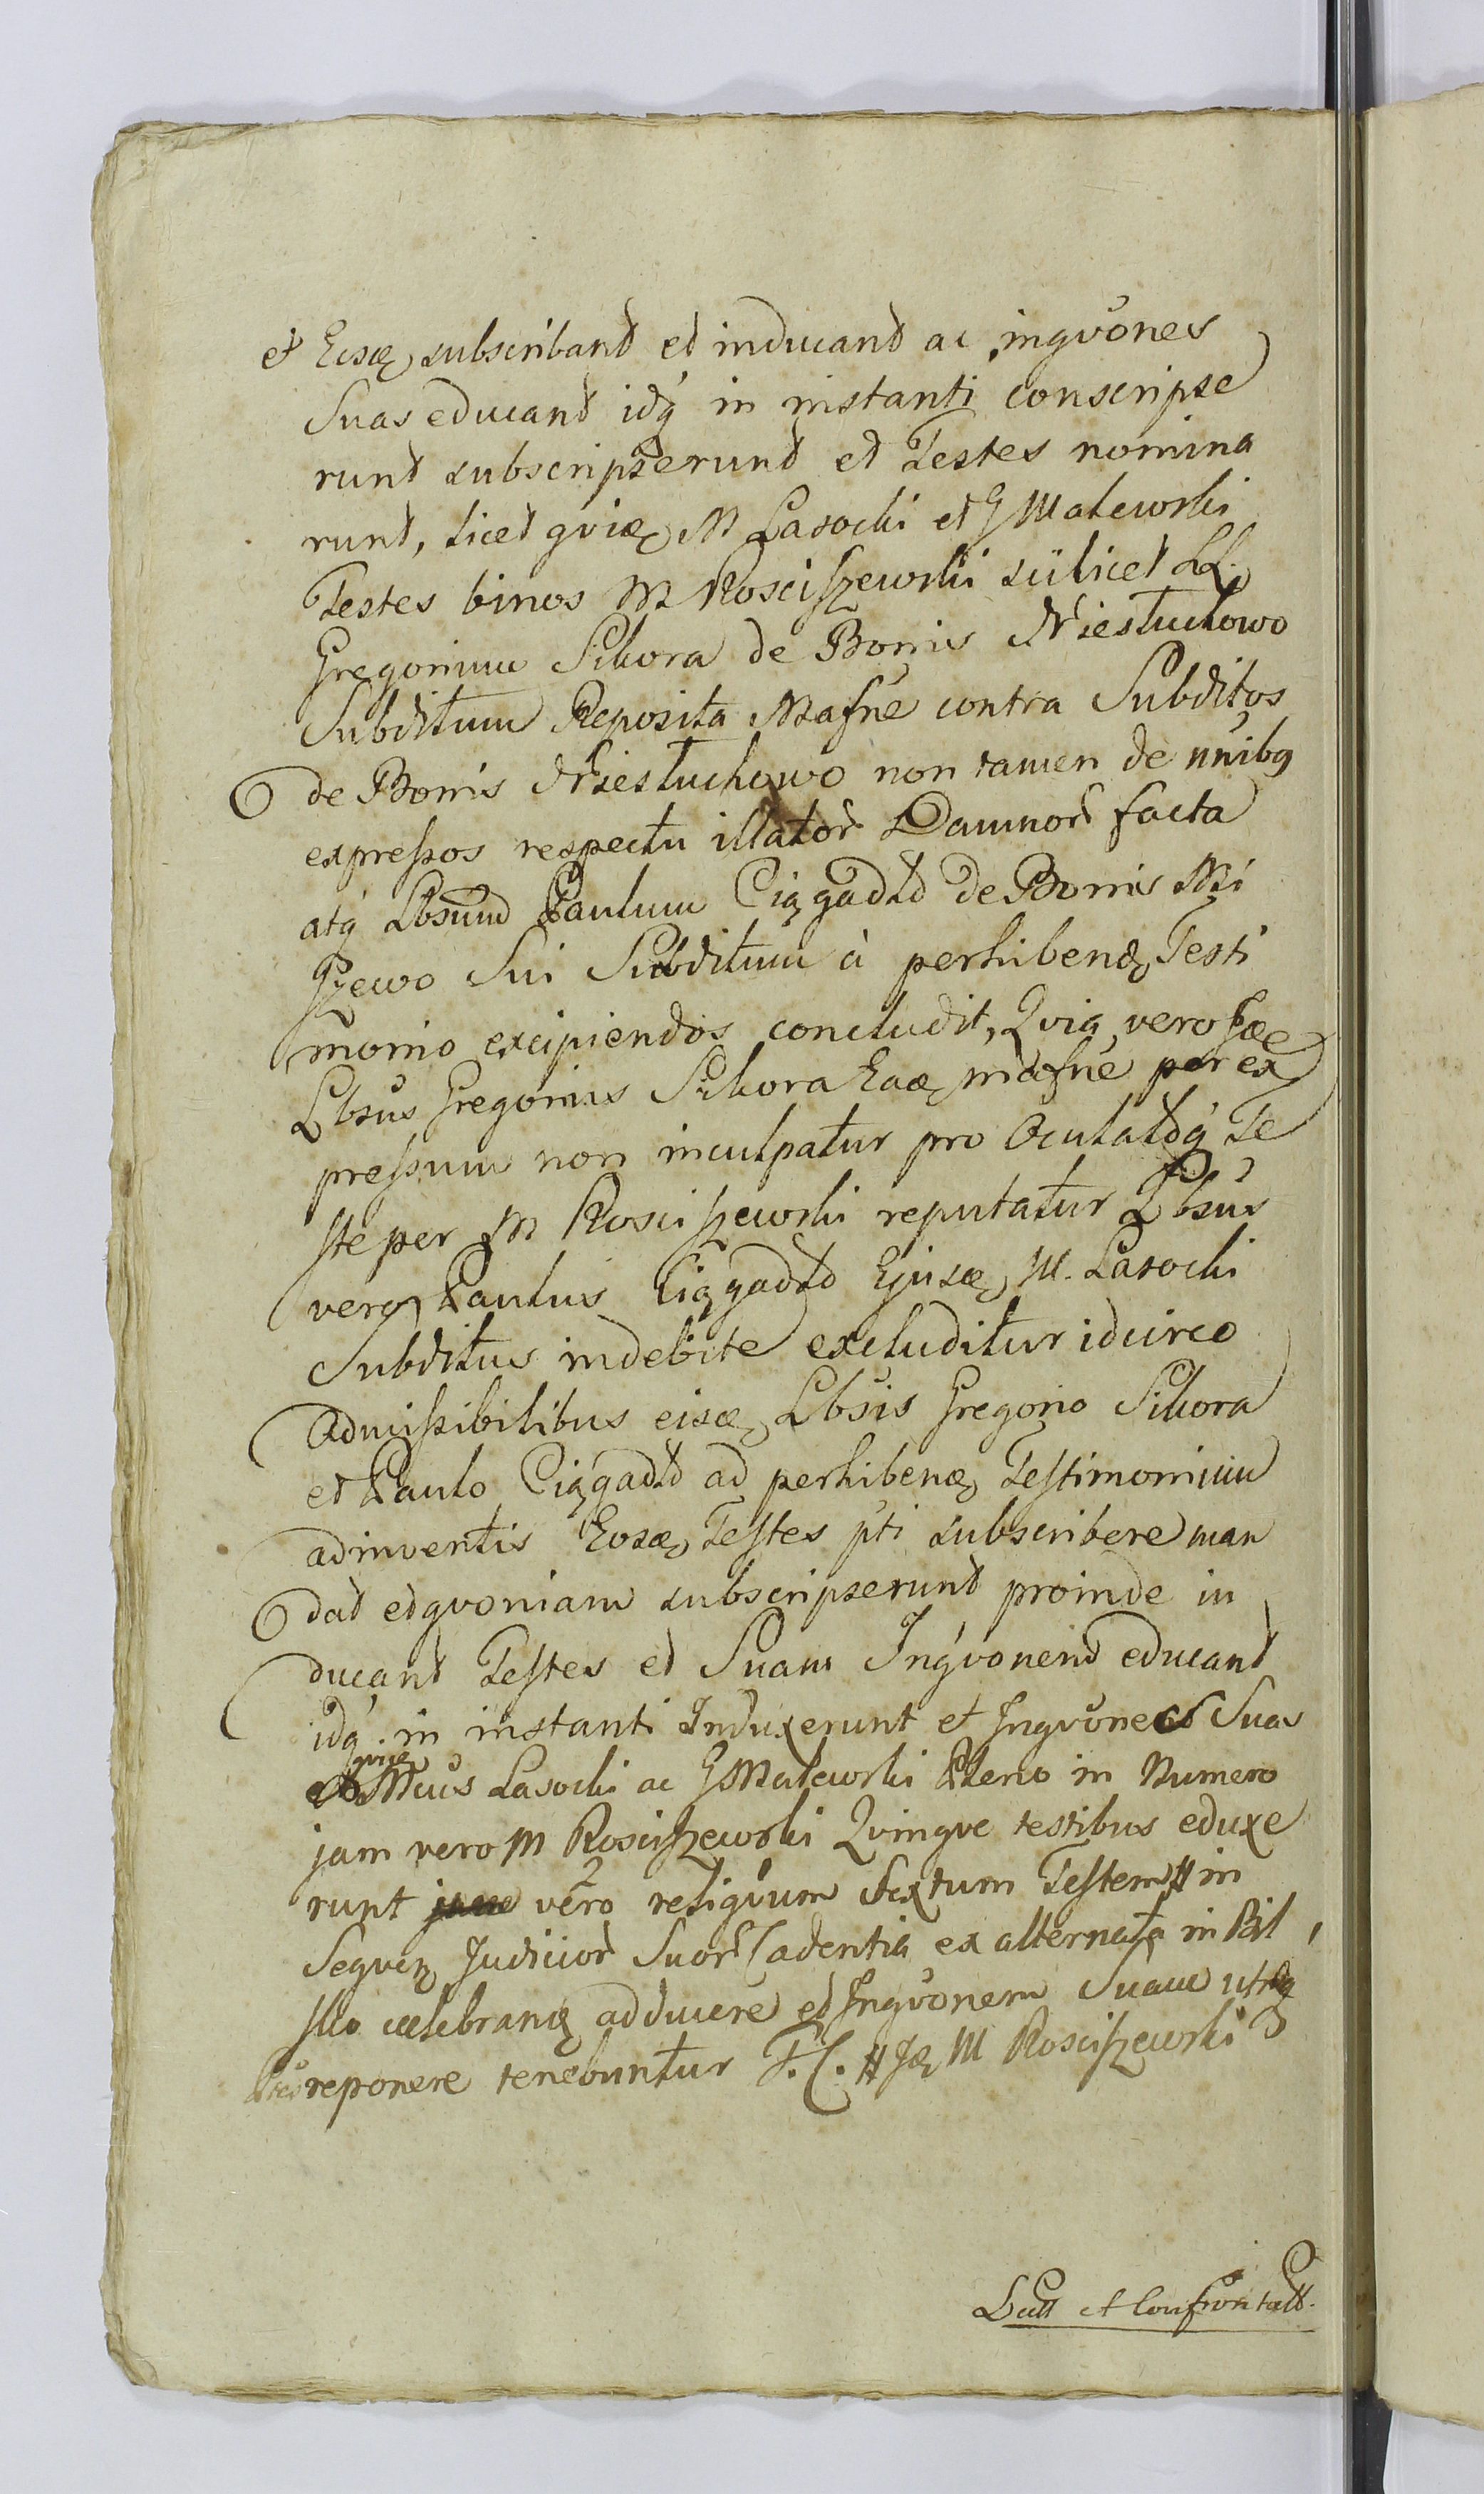 et Eosq subscribant et inducant ac ingvones
Suas educant idq in instanti conscripse
runt subscripserunt et Testes nomina
runt, licet M Lasocki et G Malewski
Testes binos M Rosciszewski scilicet LL.
Gregorium Sikora de Bonis Niestuchowo
Subditum Reposita Mafne contra Subditos
de Bonis Niestuchowo non tamen de nnibq
expressos respectu illator Damnor facta
atq Lbsum Paulum de Bonis Mi
szewo Sui Subditum à perhibend Testi
monio excipiendos concludit, Qvia vero
Lbsus Gregorius Sikora mafne per ex
pressum non inculpatur pro Te
ste per M Rosciszewski reputatur Lbsus
vero Paulus M. Lasocki
Subditus indebite excluditur idcirco
admissibilibus Lbsis Gregorio Sikora
et Paulo ad perhibend Testimonium
adinventis Testes pti subscribere man
dat et qvoniam subscripserunt proinde in
ducant Testes et Suam Ingvonem educant
idq. in instanti Induxerunt et Ingvones Suas
Mcus Lasocki ac G Malewski Pleno in Numero
jam vero M Rosciszewski Qvinqve testibus eduxe
runt vero reliqvum Sextum Testem # in
Seqven Judicior Suor Cadentia ex alternata in Bil
sko celebrand adducere et Ingvonem Suam
reponere tenebuntur F. C. # M Rosciszewski
Lect et Confrontatt.